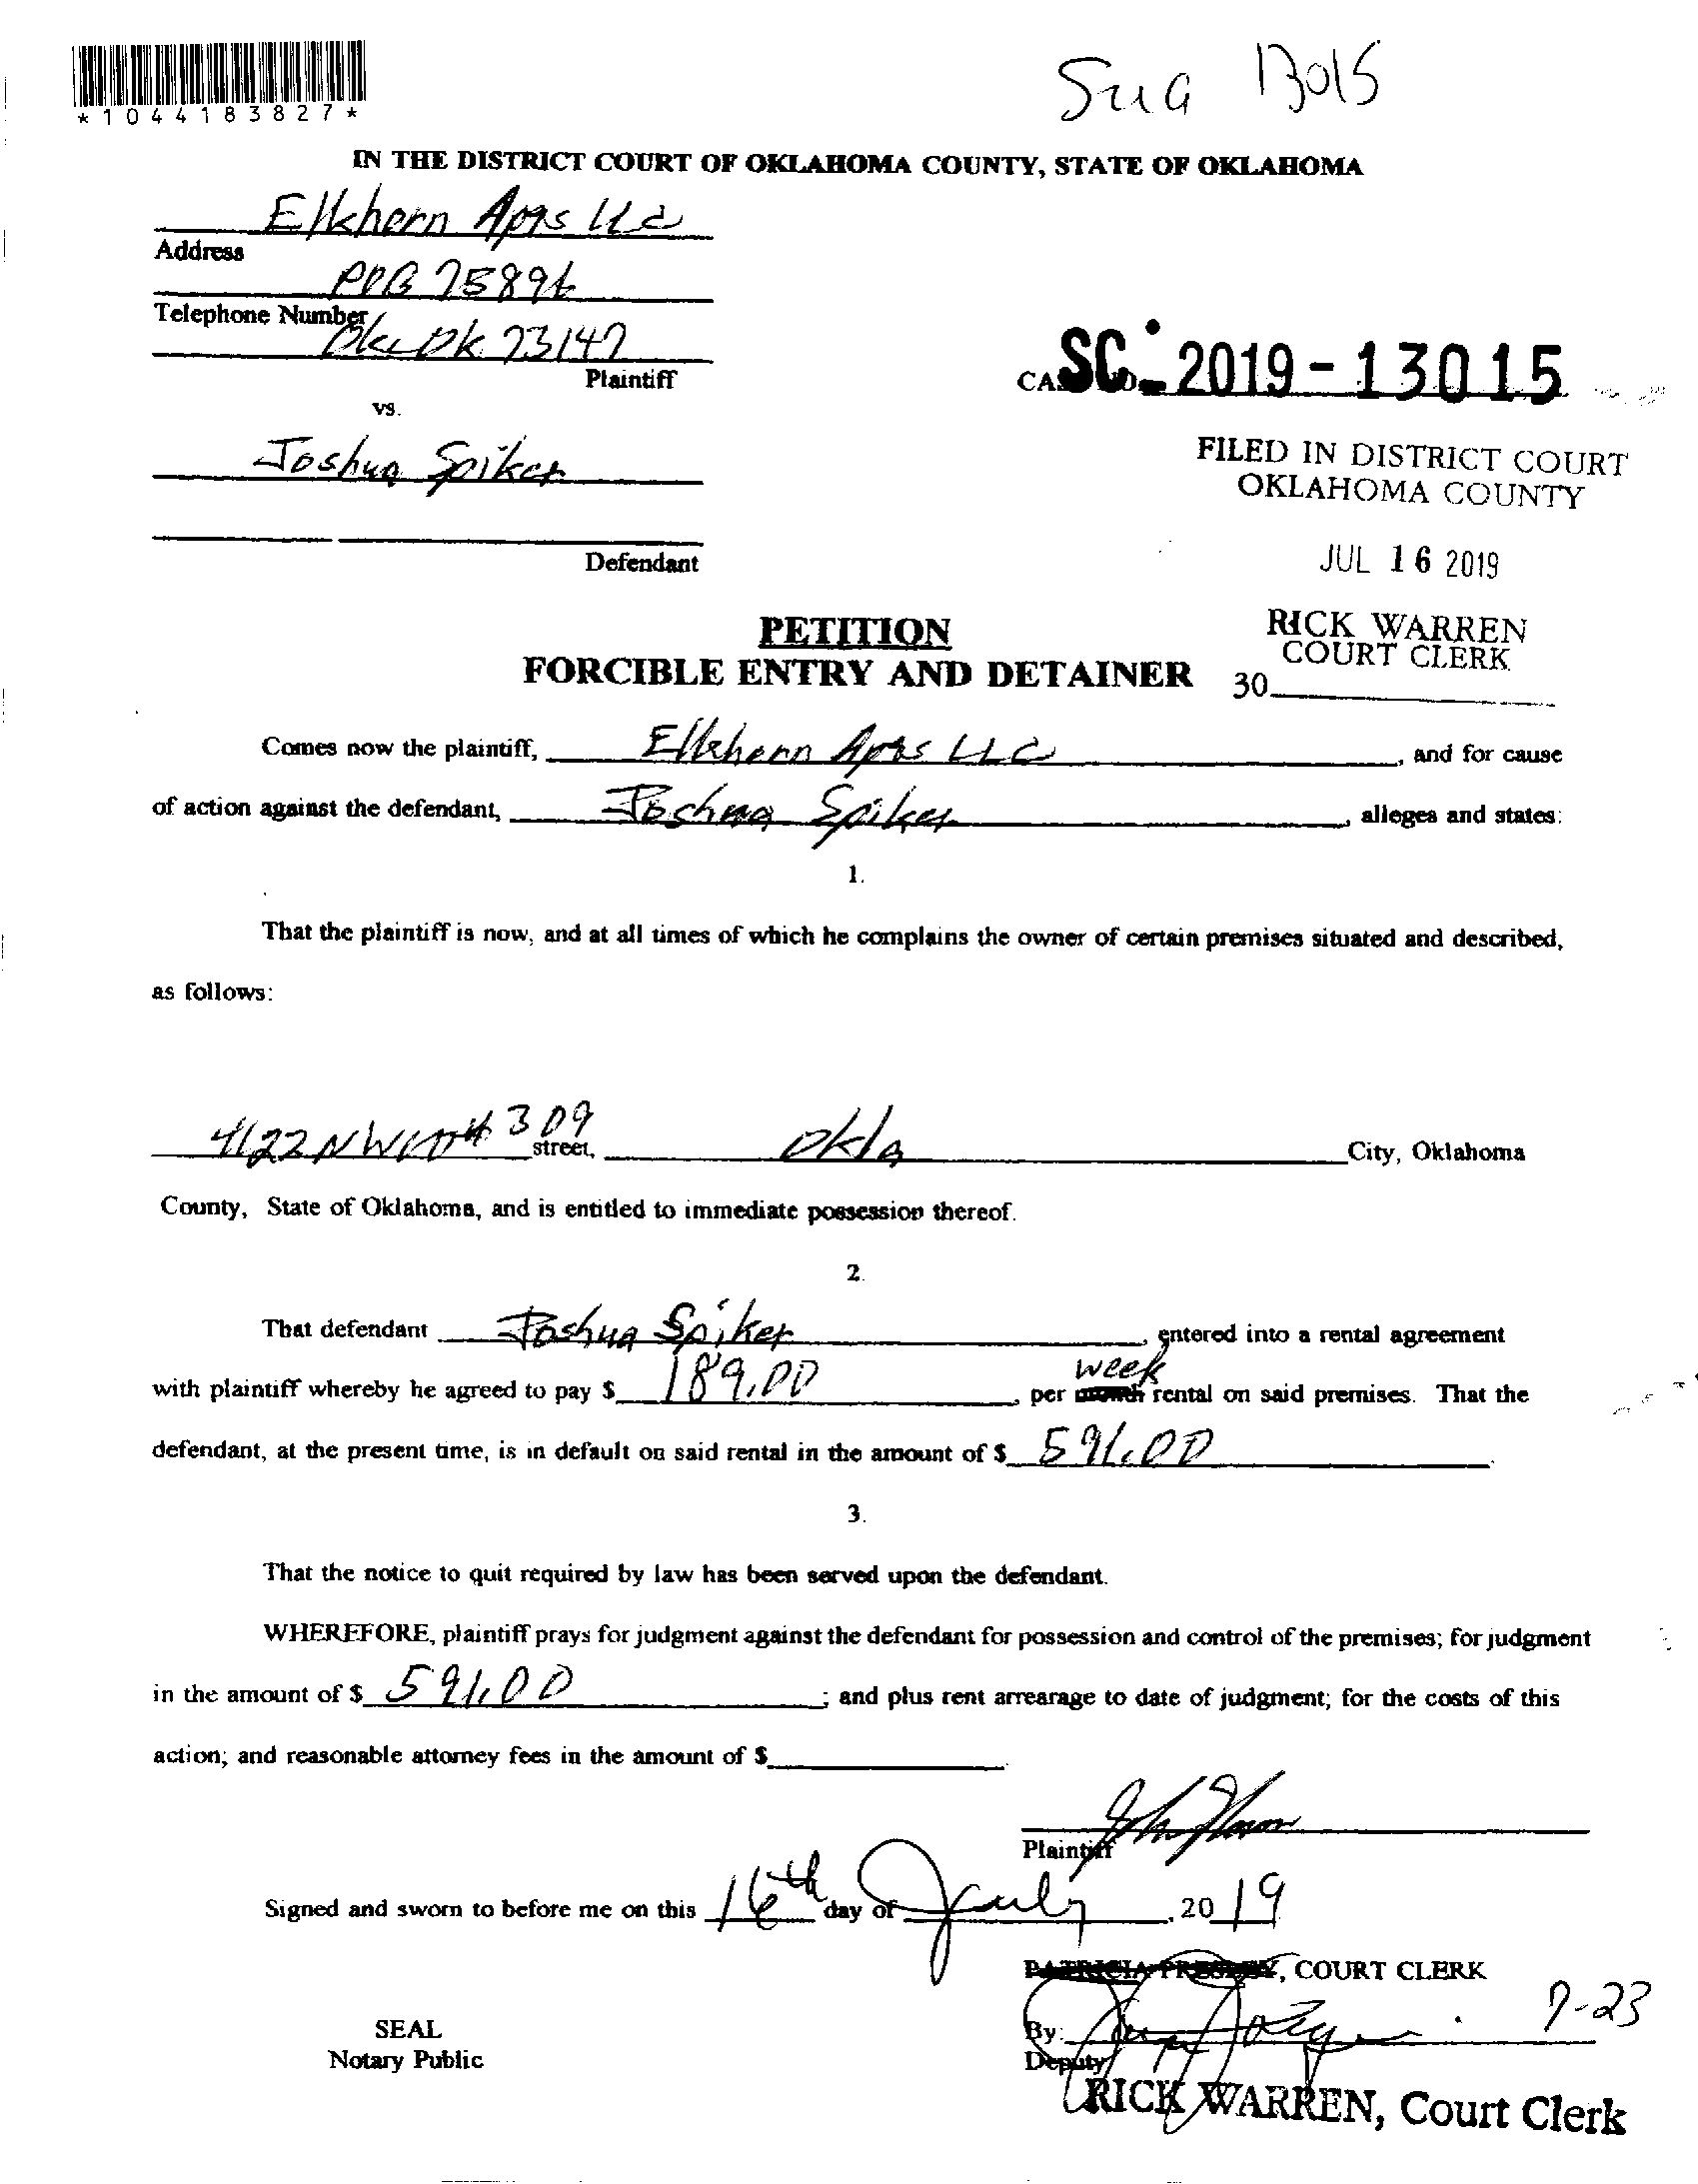 *1044183827*
13015
IN THE DISTRICT COURT OF OKLAHOMA COUNTY, STATE OF OKLAHOMA
Elkhorn Apts LLC
Address
POB 75896
Telephone Number
Okc Ok 73147
Plaintiff
SC-2019-13015
vs.
Joshua Spiker
FILED IN DISTRICT COURT
OKLAHOMA COUNTY
Defendant
JUL 16 2019
PETITION
RICK WARREN
COURT CLERK
FORCIBLE ENTRY AND DETAINER
30
Comes now the plaintiff, Elkhorn Apts LLC, and for cause
of action against the defendant, Joshua Spiker, alleges and states:
1.
That the plaintiff is now, and at all times of which he complains the owner of certain premises situated and described,
as follows:
4122 NW #309 street, Okla City, Oklahoma
County, State of Oklahoma, and is entitled to immediate possession thereof.
2.
That defendant Joshua Spiker, entered into a rental agreement
week
with plaintiff whereby he agreed to pay $ 189.00, per month rental on said premises. That the
defendant, at the present time, is in default on said rental in the amount of $ 591.00.
3.
That the notice to quit required by law has been served upon the defendant.
WHEREFORE, plaintiff prays for judgment against the defendant for possession and control of the premises; for judgment
in the amount of $ 591.00; and plus rent arrearage to date of judgment; for the costs of this
action; and reasonable attorney fees in the amount of $
Plaintiff
Signed and sworn to before me on this 16th day of July, 2019
PATRICIA PRESLEY, COURT CLERK
7-23
SEAL
By:
Notary Public
Deputy
RICK WARREN, Court Clerk